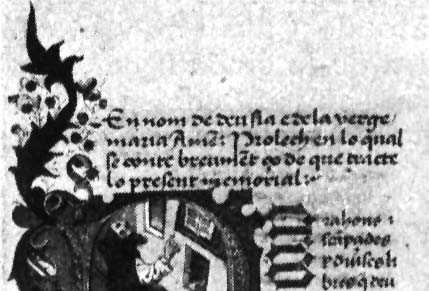 En nom de deu sia e dela verge
maria Amen: Prolech en lo qual
se conte breument ço de que tracte
lo present memorial:
rahons i
scripades
bres q deu